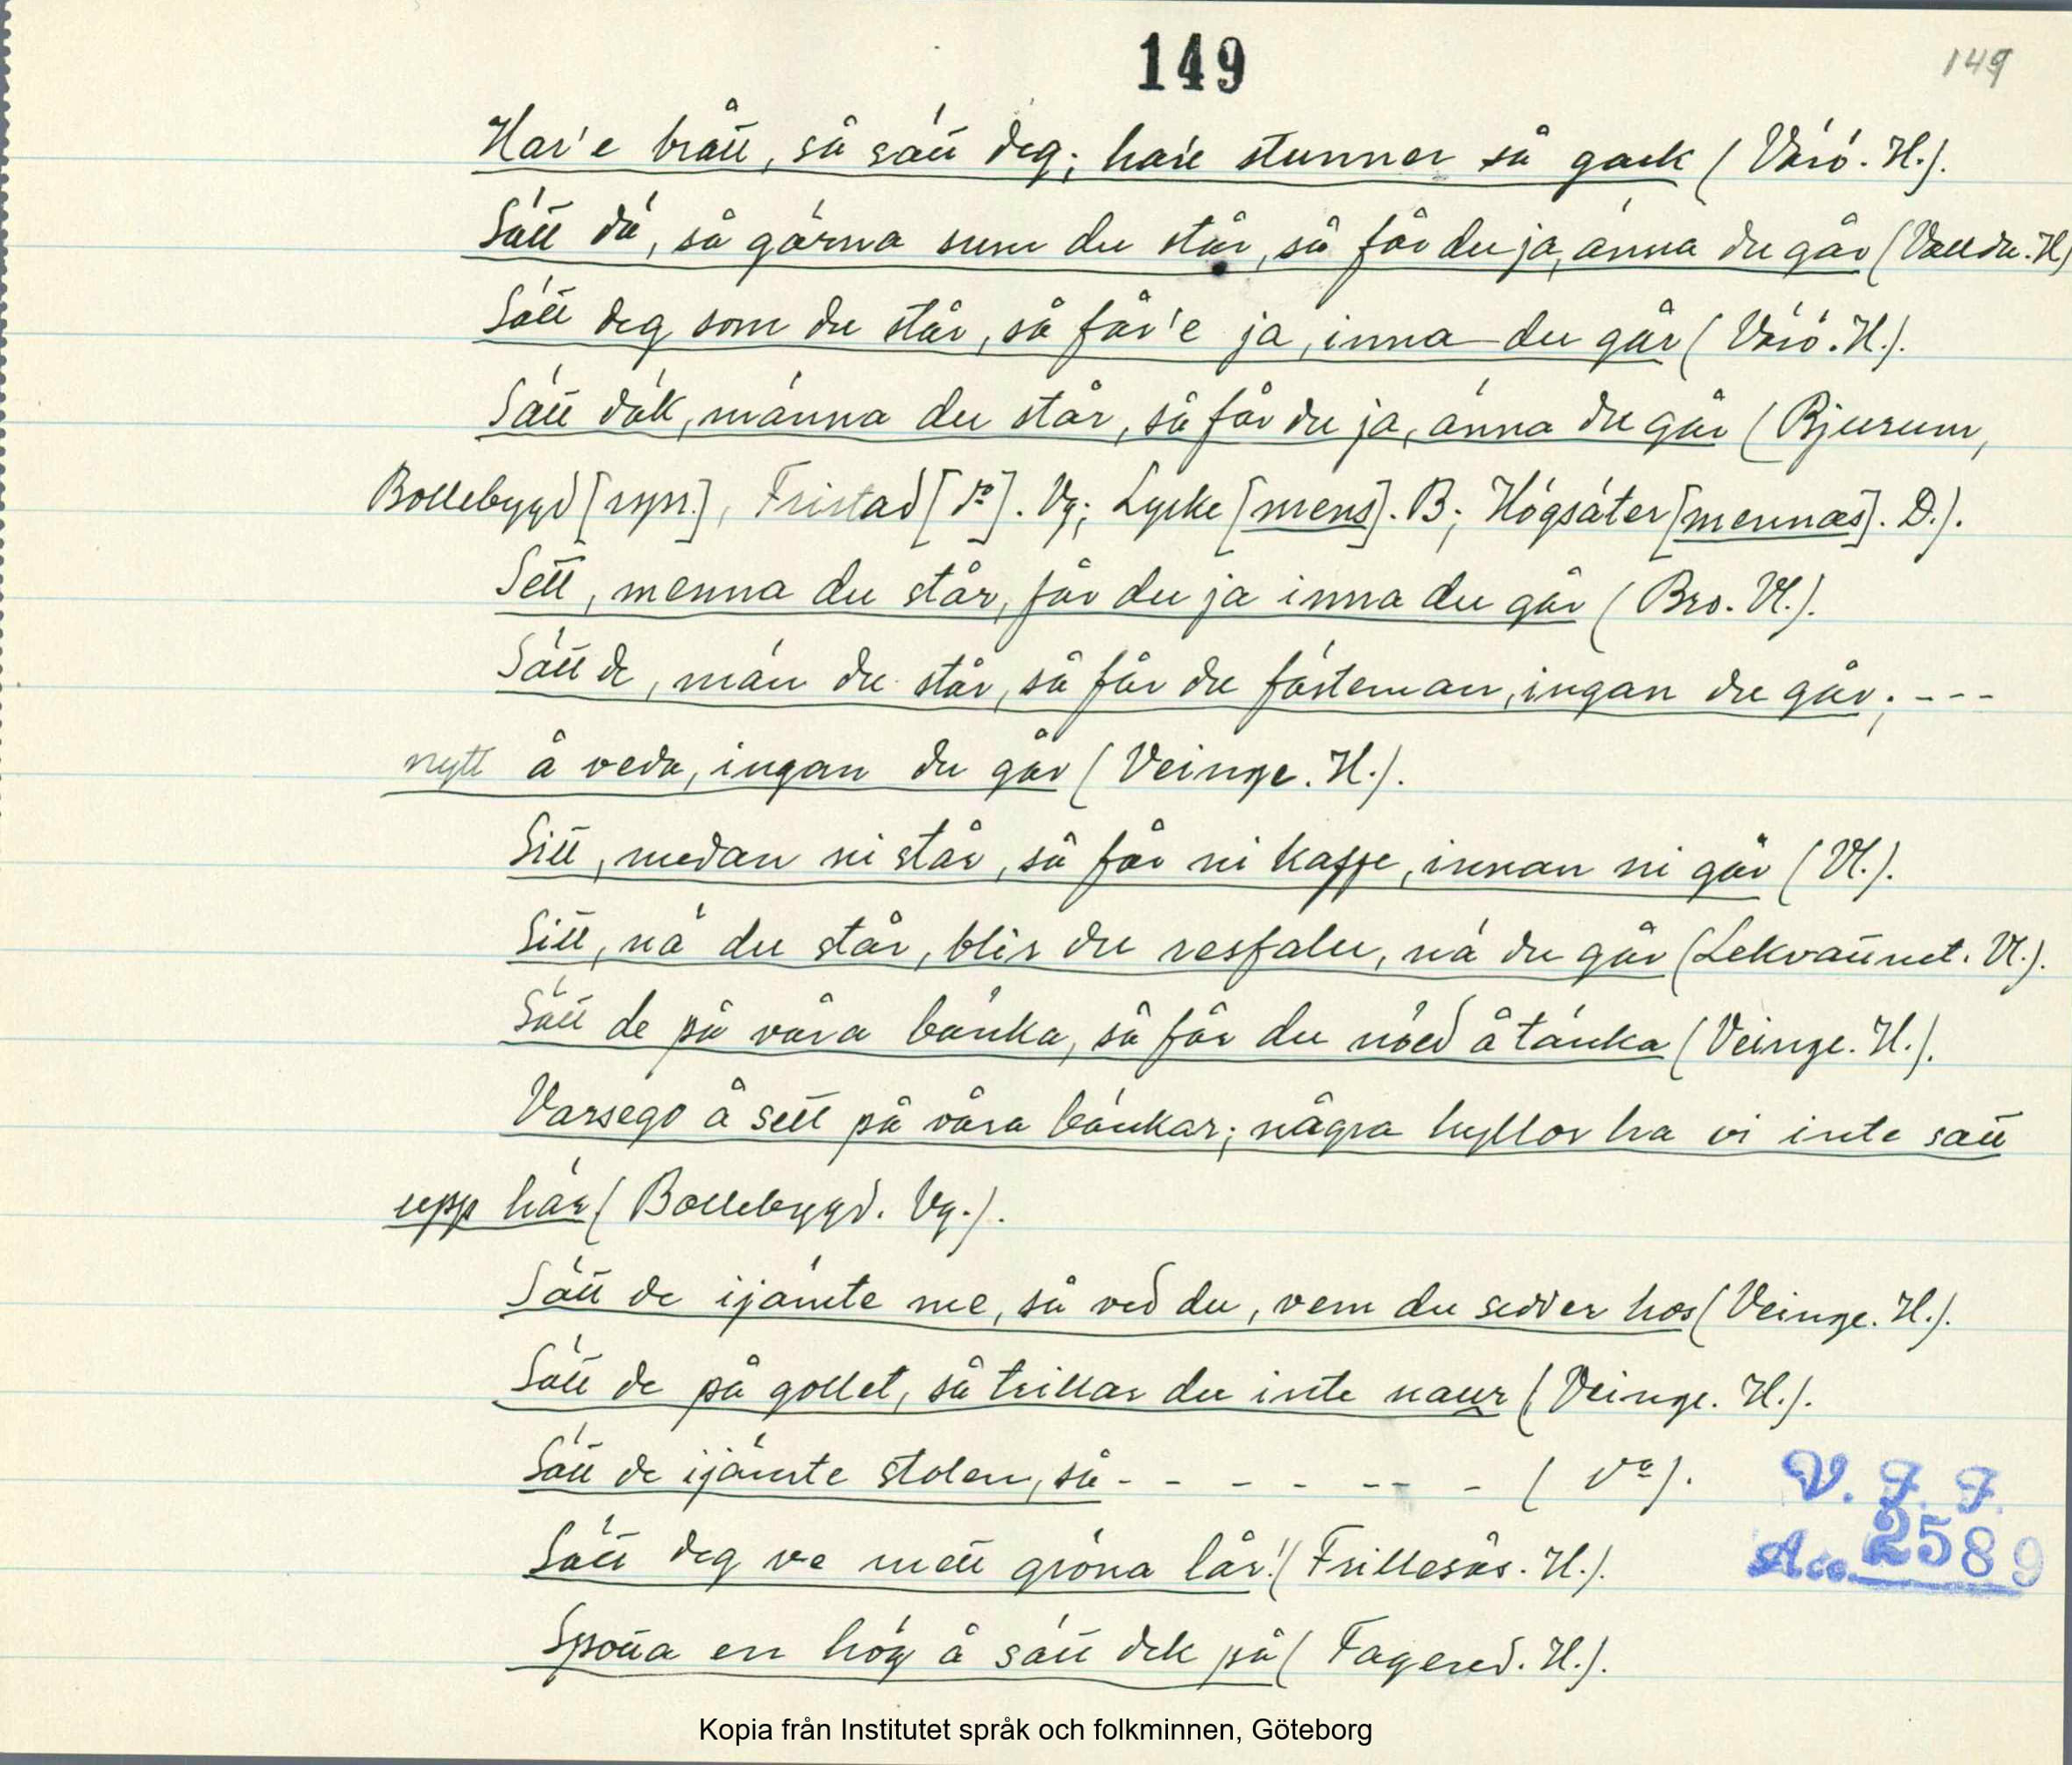 149
149
Har'e brått, så sätt deg; har'e stunner så gack (Värö. H.).
Sätt dä, så gärna sum du står, så får du ja, änna du går (Vallda. H.)
Sätt deg som du står, så får'e ja, inna du går (Värö. H.).
Sätt däk, männa du står, så får du ja, änna du går (Bjurum,
Bollebygd [syn.], Fristad [do]. Vg; Lycke [mens]. B; Högsäter [mennas]. D.).
Sett, menna du står, får du ja inna du går (Bro. Vl.).
Sätt de, män du står, så får du fästeman, ingan du går; ---
nytt å veda, ingan du går (Veinge. H.).
Sitt, medan ni står, så får ni kaffe, innan ni går (Vl.).
Sitt, nä du står, blir du resfalu, nä du går (Lekvattnet. Vl.).
Sätt de på våra bänka, så får du nöed å tänka (Veinge. H.).
Varsego å sett på våra bänkar; några hyllor ha vi inte satt
upp här (Bollebygd. Vg.).
Sätt de ijämte me, så ved du, vem du sedder hos (Veinge. H.).
Sätt de på gollet, så trillar du inte naur (Veinge. H.).
Sätt de ijämte stolen, så - - - - - - - (do).
Sätt deg ve mett gröna lår! (Frillesås. H.).
Spotta en hög å sätt dek på (Fagered. H.).
V. F. F.
Acc. 2589
Kopia från Institutet språk och folkminnen, Göteborg